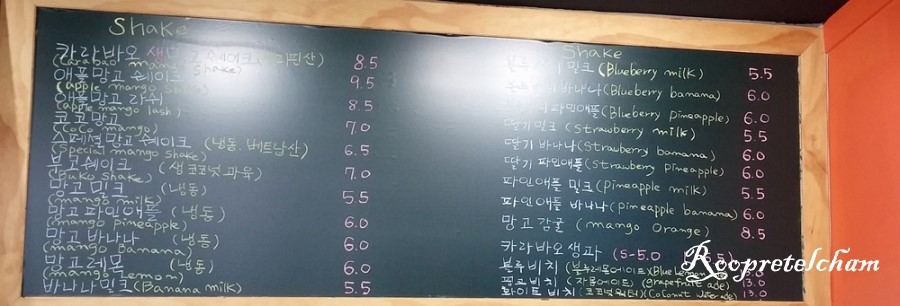 Shake
카라바오 생망고 쉐이크 (필리핀산) 8.5
(Carabao mango Shake)
애플망고 쉐이크 9.5
(apple mango Shake)
애플망고 라쉬 8.5
(apple mango lash)
코코망고 7.0
(CoCo mango)
스페셜망고 쉐이크 (냉동.베트남산) 6.5
(Special mango shake)
부코쉐이크 (생코코넛과육) 7.0
(Buko Shake)
망고밀크 (냉동) 5.5
(mango milk)
망고파인애플 (냉동) 6.0
(mango pineapple)
망고바나나 (냉동) 6.0
(mango Banana)
망고레몬 (냉동) 6.0
(mango Lemon)
바나나밀크 (Banana milk) 5.5
Shake
블루베리 밀크 (Blueberry milk) 5.5
바나나 (Blueberry banana) 6.0
파인애플 (Blueberry pineapple) 6.0
딸기밀크 (Strawberry milk) 5.5
딸기 바나나 (Strawberry banana) 6.0
딸기 파인애플 (Strawberry pineapple) 6.0
파인애플 밀크 (Pineapple milk) 5.5
파인애플 바나나 (pineapple banana) 6.0
망고감귤 (mango Orange) 8.5
카라바오생과 (S-5.0
블루비치 (블루레몬에이드) (Blue Lemon
(자몽에이드) (grapefruit ade) 13.0
화이트비치 (코코넛워터) (Coconut water ade) 13.0
Roopretelcham